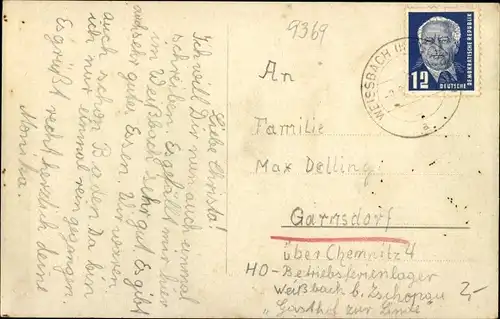 9369
Liebe Christa!
Ich will Dir nun auch einmal
schreiben. Es gefällt mir hier
im Weißbach sehr gut. Es gibt
auch sehr guter Essen. Wir waren
auch schon Baden. Da bin
ich nur einmal reingegangen.
Es grüßt recht herzlich deine
Monika.
DEUTSCHE DEMOKRATISCHE REPUBLIK
12
WEISSBACH
a
An
Familie
Max Delling
Garnsdorf
über Chemnitz 4
HO-Betriebsferienlager
Weißbach b. Zschopau
"Gasthof zur Linde"
2,-